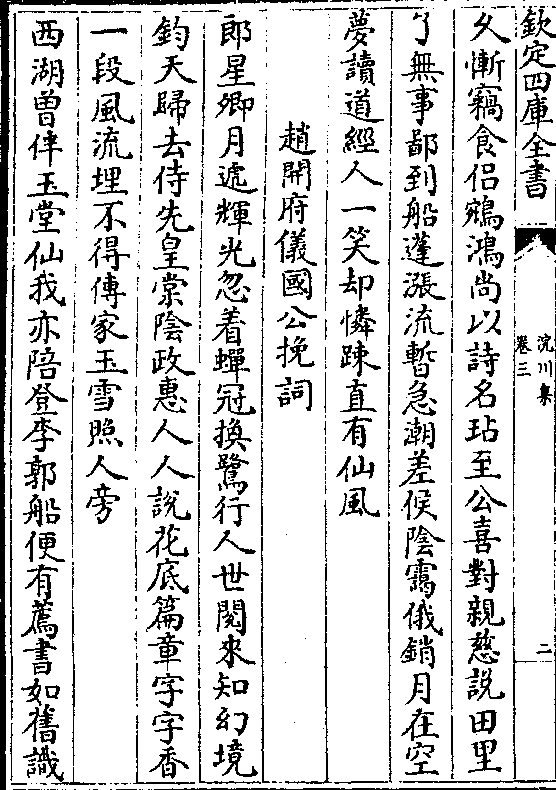 欽定四庫全書
沇川集
卷三
二
久慚竊食侣鵷鴻尚以詩名玷至公喜對親慈説田里
了無事鄙到船蓬漲流暫急潮差候陰靄俄銷月在空
夢讀道經人一笑却憐踈直有仙風
趙開府儀國公挽詞
郎星卿月遞輝光忽着蟬冠換鷺行人世閱來知幻境
鈞天歸去侍先皇棠陰政惠人人說花底篇章字字香
一段風流埋不得傳家玉雪照人旁
西湖曽伴玉堂仙我亦陪登李郭船便有薦書如舊識